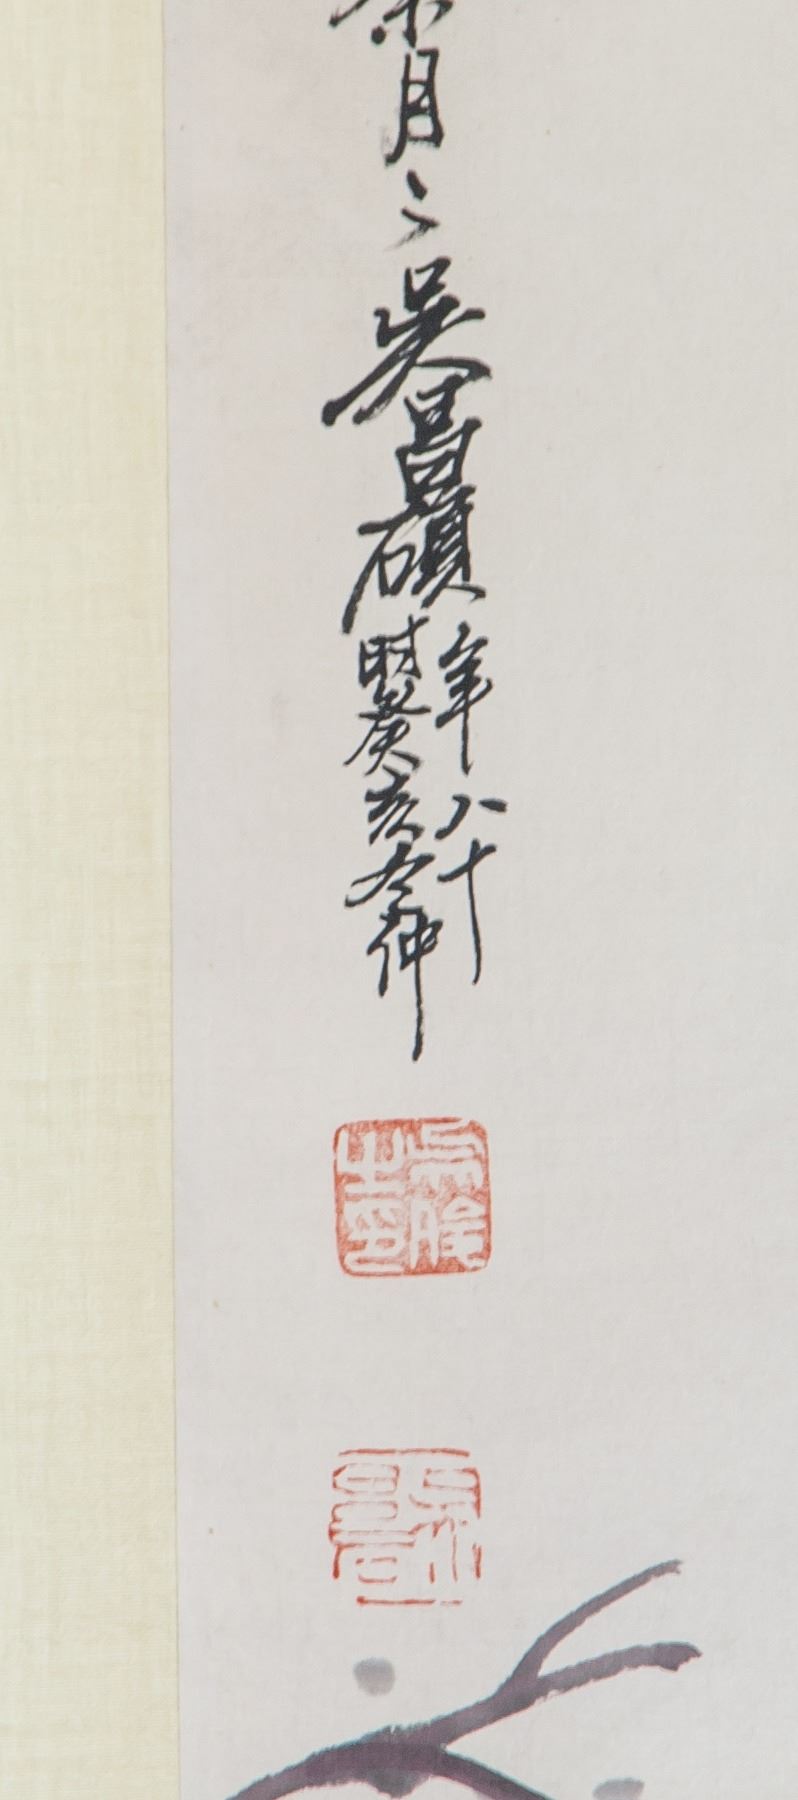 月〻吴昌碩
年八十
時癸亥冬仲
吳俊之印
吳昌石